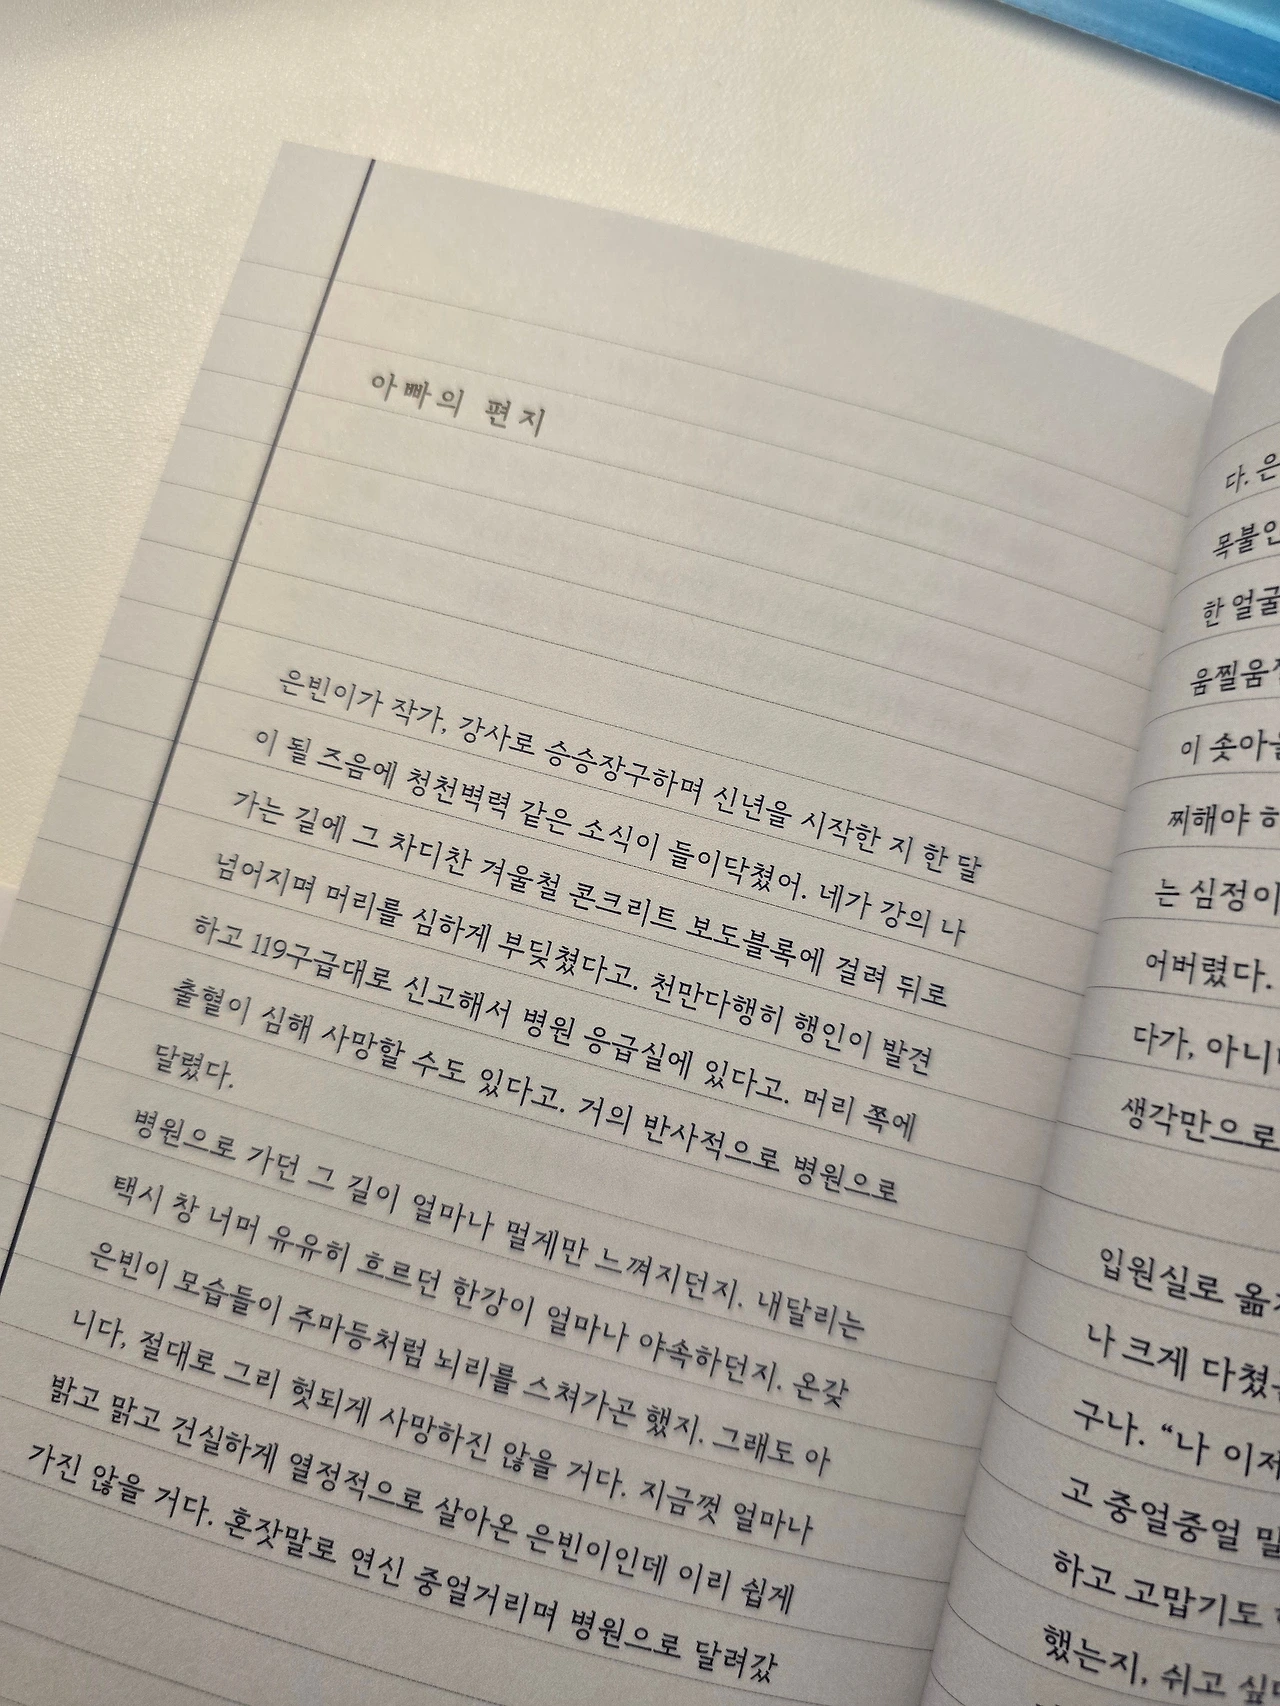 아빠의 편지
은빈이가 작가, 강사로 승승장구하며 신년을 시작한 지 한 달
이 될 즈음에 청천벽력 같은 소식이 들이닥쳤어. 네가 강의 나
가는 길에 그 차디찬 겨울철 콘크리트 보도블록에 걸려 뒤로
넘어지며 머리를 심하게 부딪쳤다고. 천만다행히 행인이 발견
하고 119구급대로 신고해서 병원 응급실에 있다고. 머리 쪽에
출혈이 심해 사망할 수도 있다고. 거의 반사적으로 병원으로
달렸다.
병원으로 가던 그 길이 얼마나 멀게만 느껴지던지. 내달리는
택시 창 너머 유유히 흐르던 한강이 얼마나 야속하던지. 온갖
은빈이 모습들이 주마등처럼 뇌리를 스쳐가곤 했지. 그래도 아
니다, 절대로 그리 헛되게 사망하진 않을 거다. 지금껏 얼마나
밝고 맑고 건실하게 열정적으로 살아온 은빈이인데 이리 쉽게
가진 않을 거다. 혼잣말로 연신 중얼거리며 병원으로 달려갔
다. 은
한 얼굴
이
찌해야
는 심정이
어버렸다.
다가,
생각만으로
입원실로
나 크게
구나. “나 이제
고 중얼중얼
하고 고맙기도
했는지, 쉬고